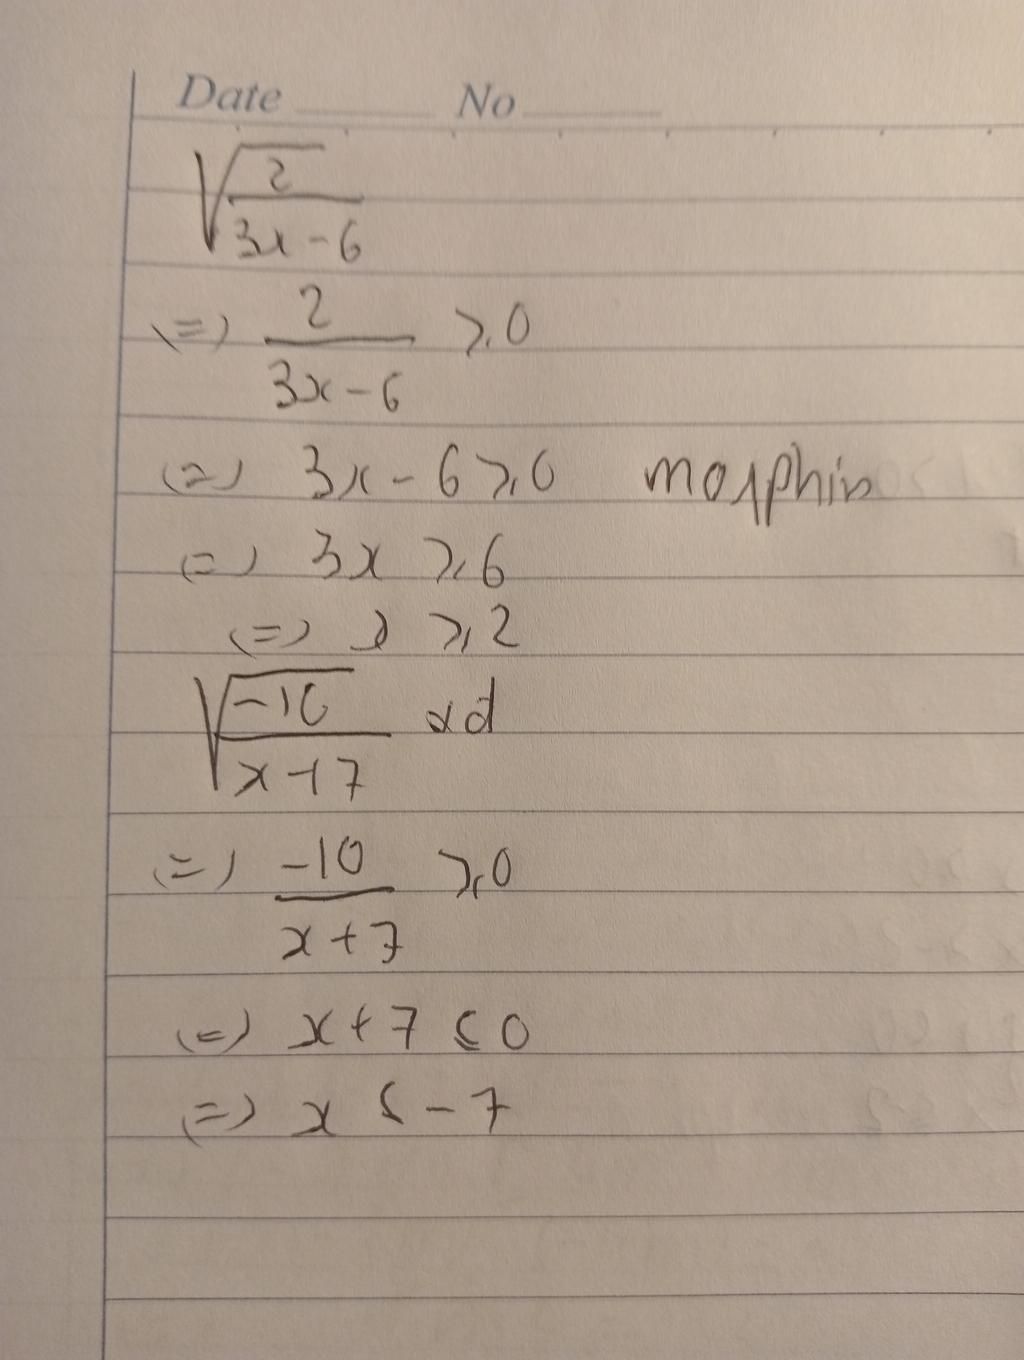 Date No
√(2/(3x-6))
(=) 2/(3x-6) ≥ 0
(=) 3x - 6 ≥ 0 morphin
(=) 3x ≥ 6
(=) x ≥ 2
√(-10/(x+7)) xd
(=) -10/(x+7) ≥ 0
(=) x + 7 ≤ 0
(=) x ≤ -7